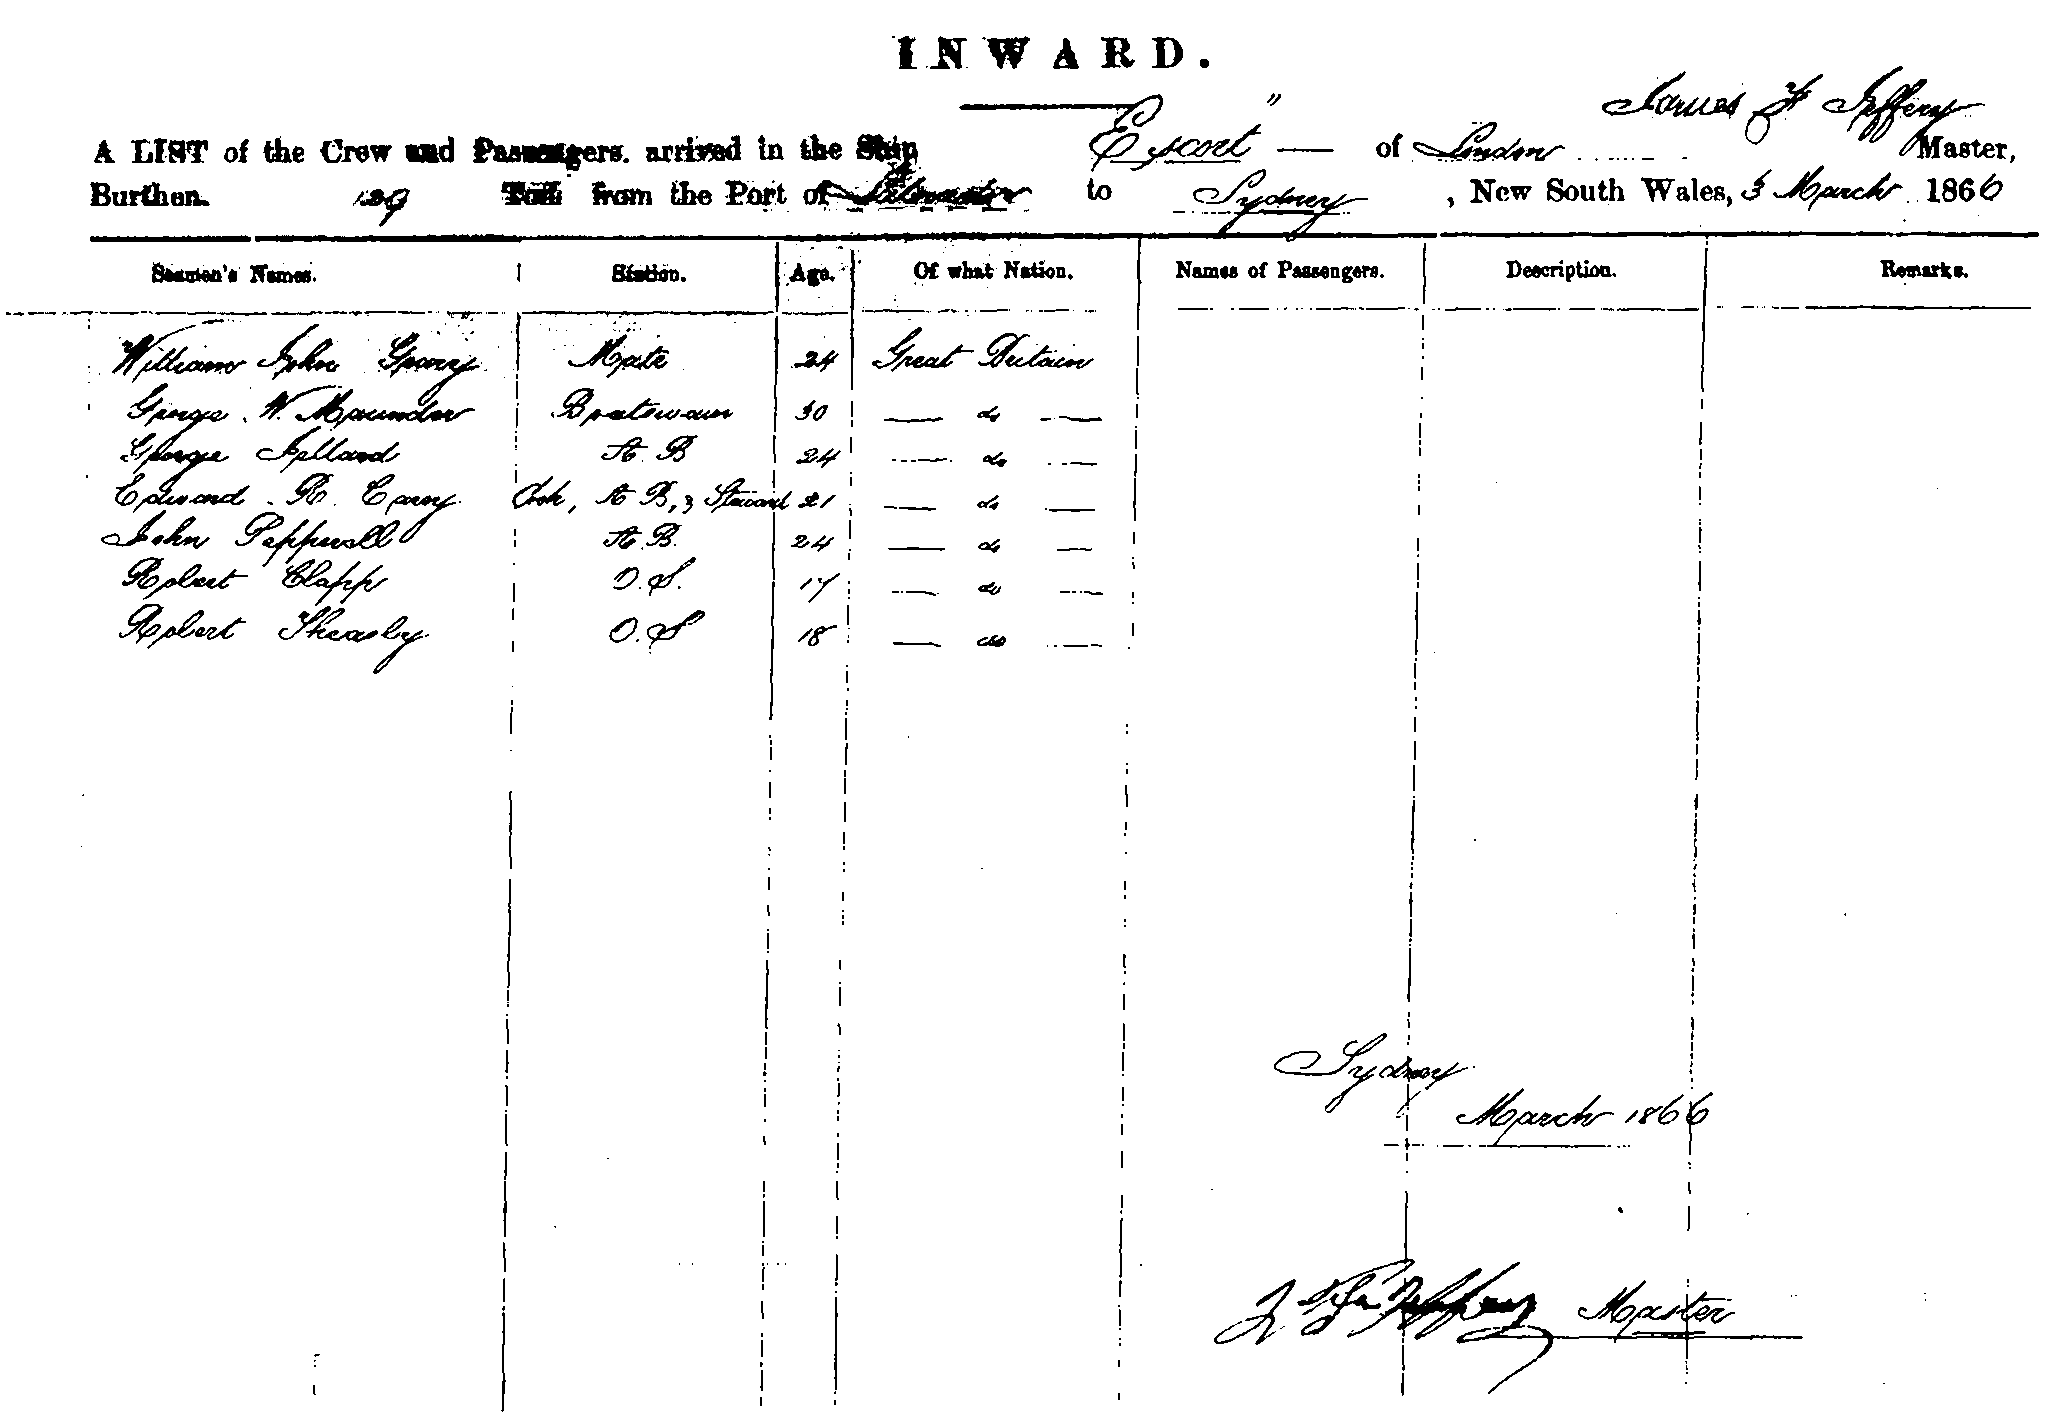 INWARD.
James F Jeffery
A LIST of the Crew and Passengers. arrived in the Ship Escort" — of London Master,
Burthen. 129 Tons from the Port of to Sydney , New South Wales, 3 March 1866
Seamen's Names. Station. Age. Of what Nation. Names of Passengers. Description. Remarks.
William John Mate 24 Great Britain
George W. Maunder Boatswain 30 — do —
George Jelland A B 24 — do —
Edward R. Carey Cook, A B, & Steward 21 — do —
John Pepperell A.B. 24 — do —
Robert Clapp O.S. 17 — do —
Robert Sheasby O.S 18 — do —
Sydney
March 1866
Jeffery Master